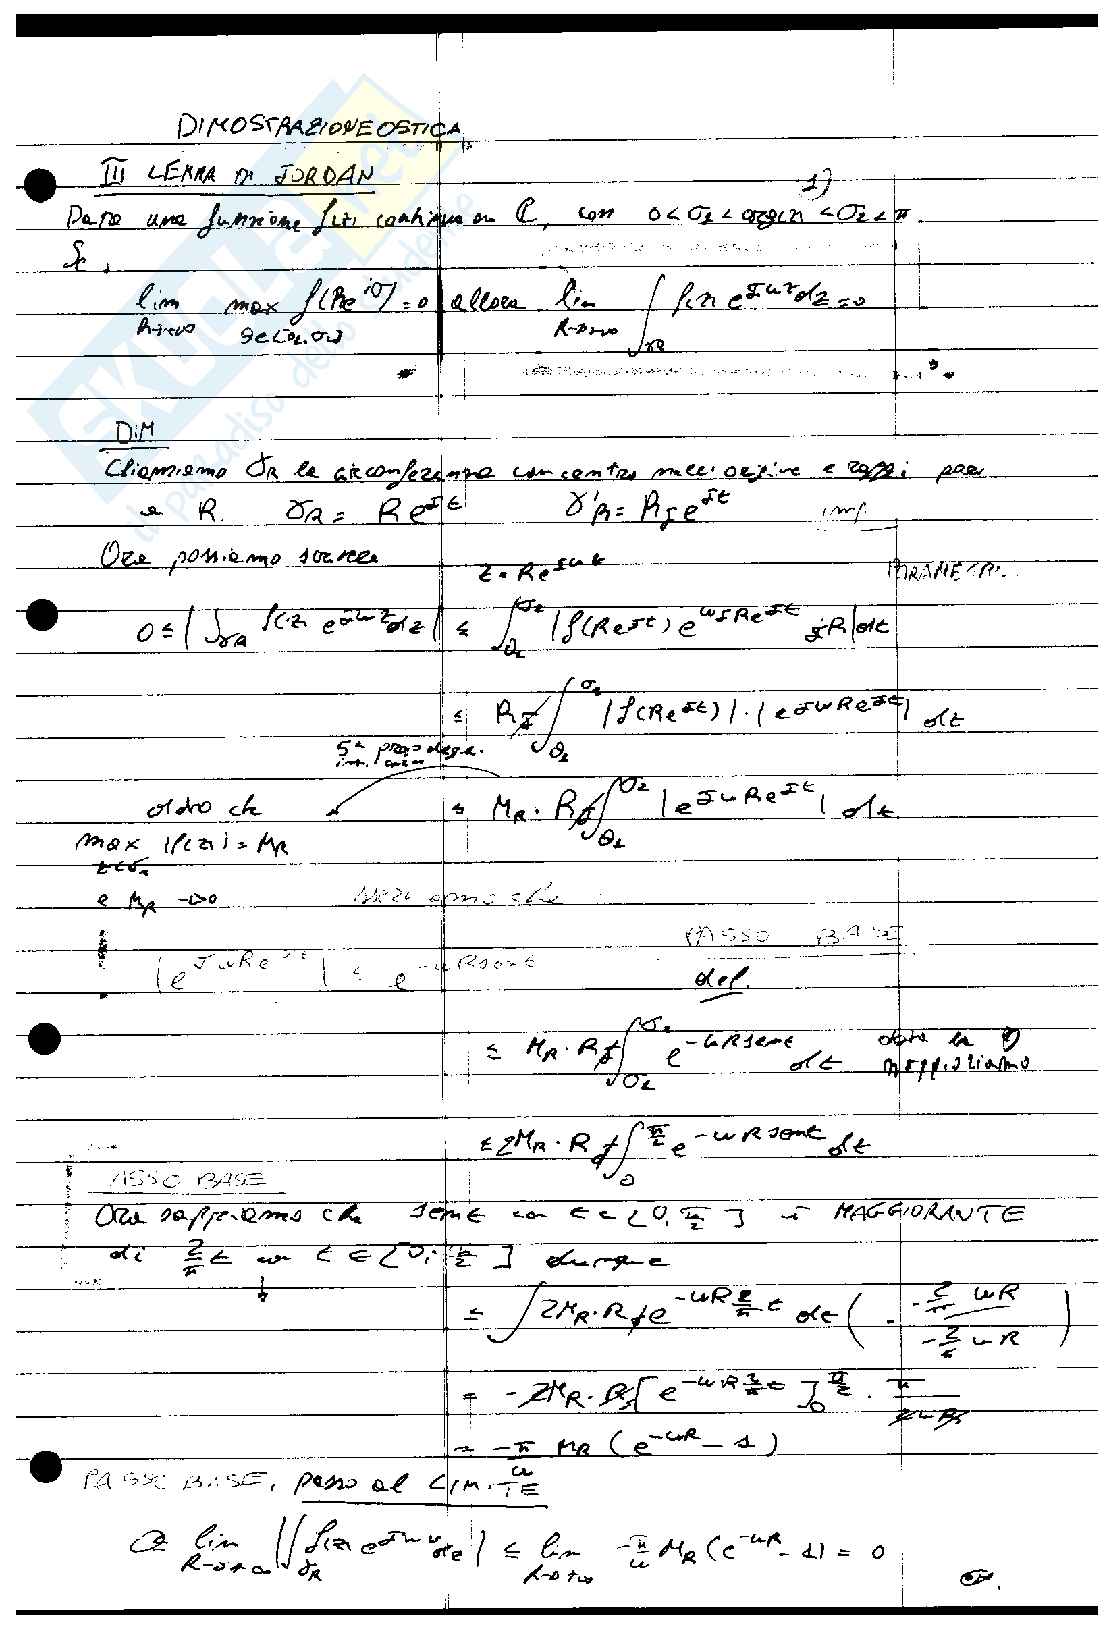 DIMOSTRAZIONE OSTICA
III LEMMA DI JORDAN
1)
Data una funzione f(z) continua in C, con 0 < σ1 < arg(z) < σ2 < π.
Se,
lim R→+∞ max f(Re^{jσ}) = 0 allora lim R→+∞ ∫γR f(z) e^{jωz} dz = 0
DIM
Chiamiamo γR la circonferenza con centro nell'origine e raggi pari
a R. γR = Re^{jt} γ'R = Rje^{jt} imp.
Ora possiamo
PARAMETRI
0 ≤ |∫γR f(z) e^{jωz} dz| ≤ ∫_{σ1}^{σ2} |f(Re^{jt}) e^{ωjRe^{jt}} jR| dt
≤ R ∫_{σ1}^{σ2} |f(Re^{jt})| · |e^{jωRe^{jt}}| dt
5ª
dato che
≤ MR · R ∫_{σ1}^{σ2} |e^{jωRe^{jt}}| dt
max |f(z)| = MR
e MR → 0
che
PASSO BASE
|e^{jωRe^{jt}}| ≤ e^{-ωR sent}
def.
≤ MR · R ∫_{σ1}^{σ2} e^{-ωR sent} dt data la 1)
maggioriamo
≤ 2MR · R ∫_0^{π/2} e^{-ωR sent} dt
PASSO BASE
Ora sappiamo che sent con t ∈ [0, π/2] è MAGGIORANTE
di 2/π t con t ∈ [0; π/2] dunque
≤ ∫ 2MR · R e^{-ωR 2/π t} dt ( -2/π ωR / -2/π ωR )
= -2MR · R [ e^{-ωR 2/π t} ]_0^{π/2} · π / 2ωR
= -π/ω MR (e^{-ωR} - 1)
PASSO BASE, passo al LIMITE
0 lim R→+∞ |∫γR f(z) e^{jωz} dz| ≤ lim R→+∞ -π/ω MR (e^{-ωR} - 1) = 0